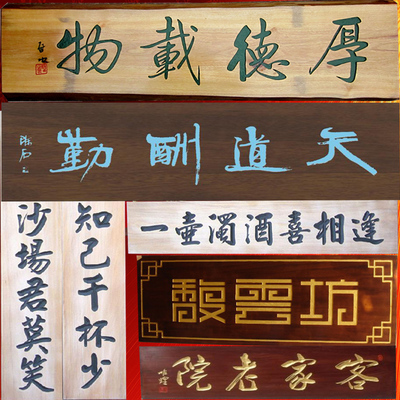 厚德載物
天道酬勤
知己千杯少
沙場君莫笑
一壺濁酒喜相逢
馥雲坊
客家老院